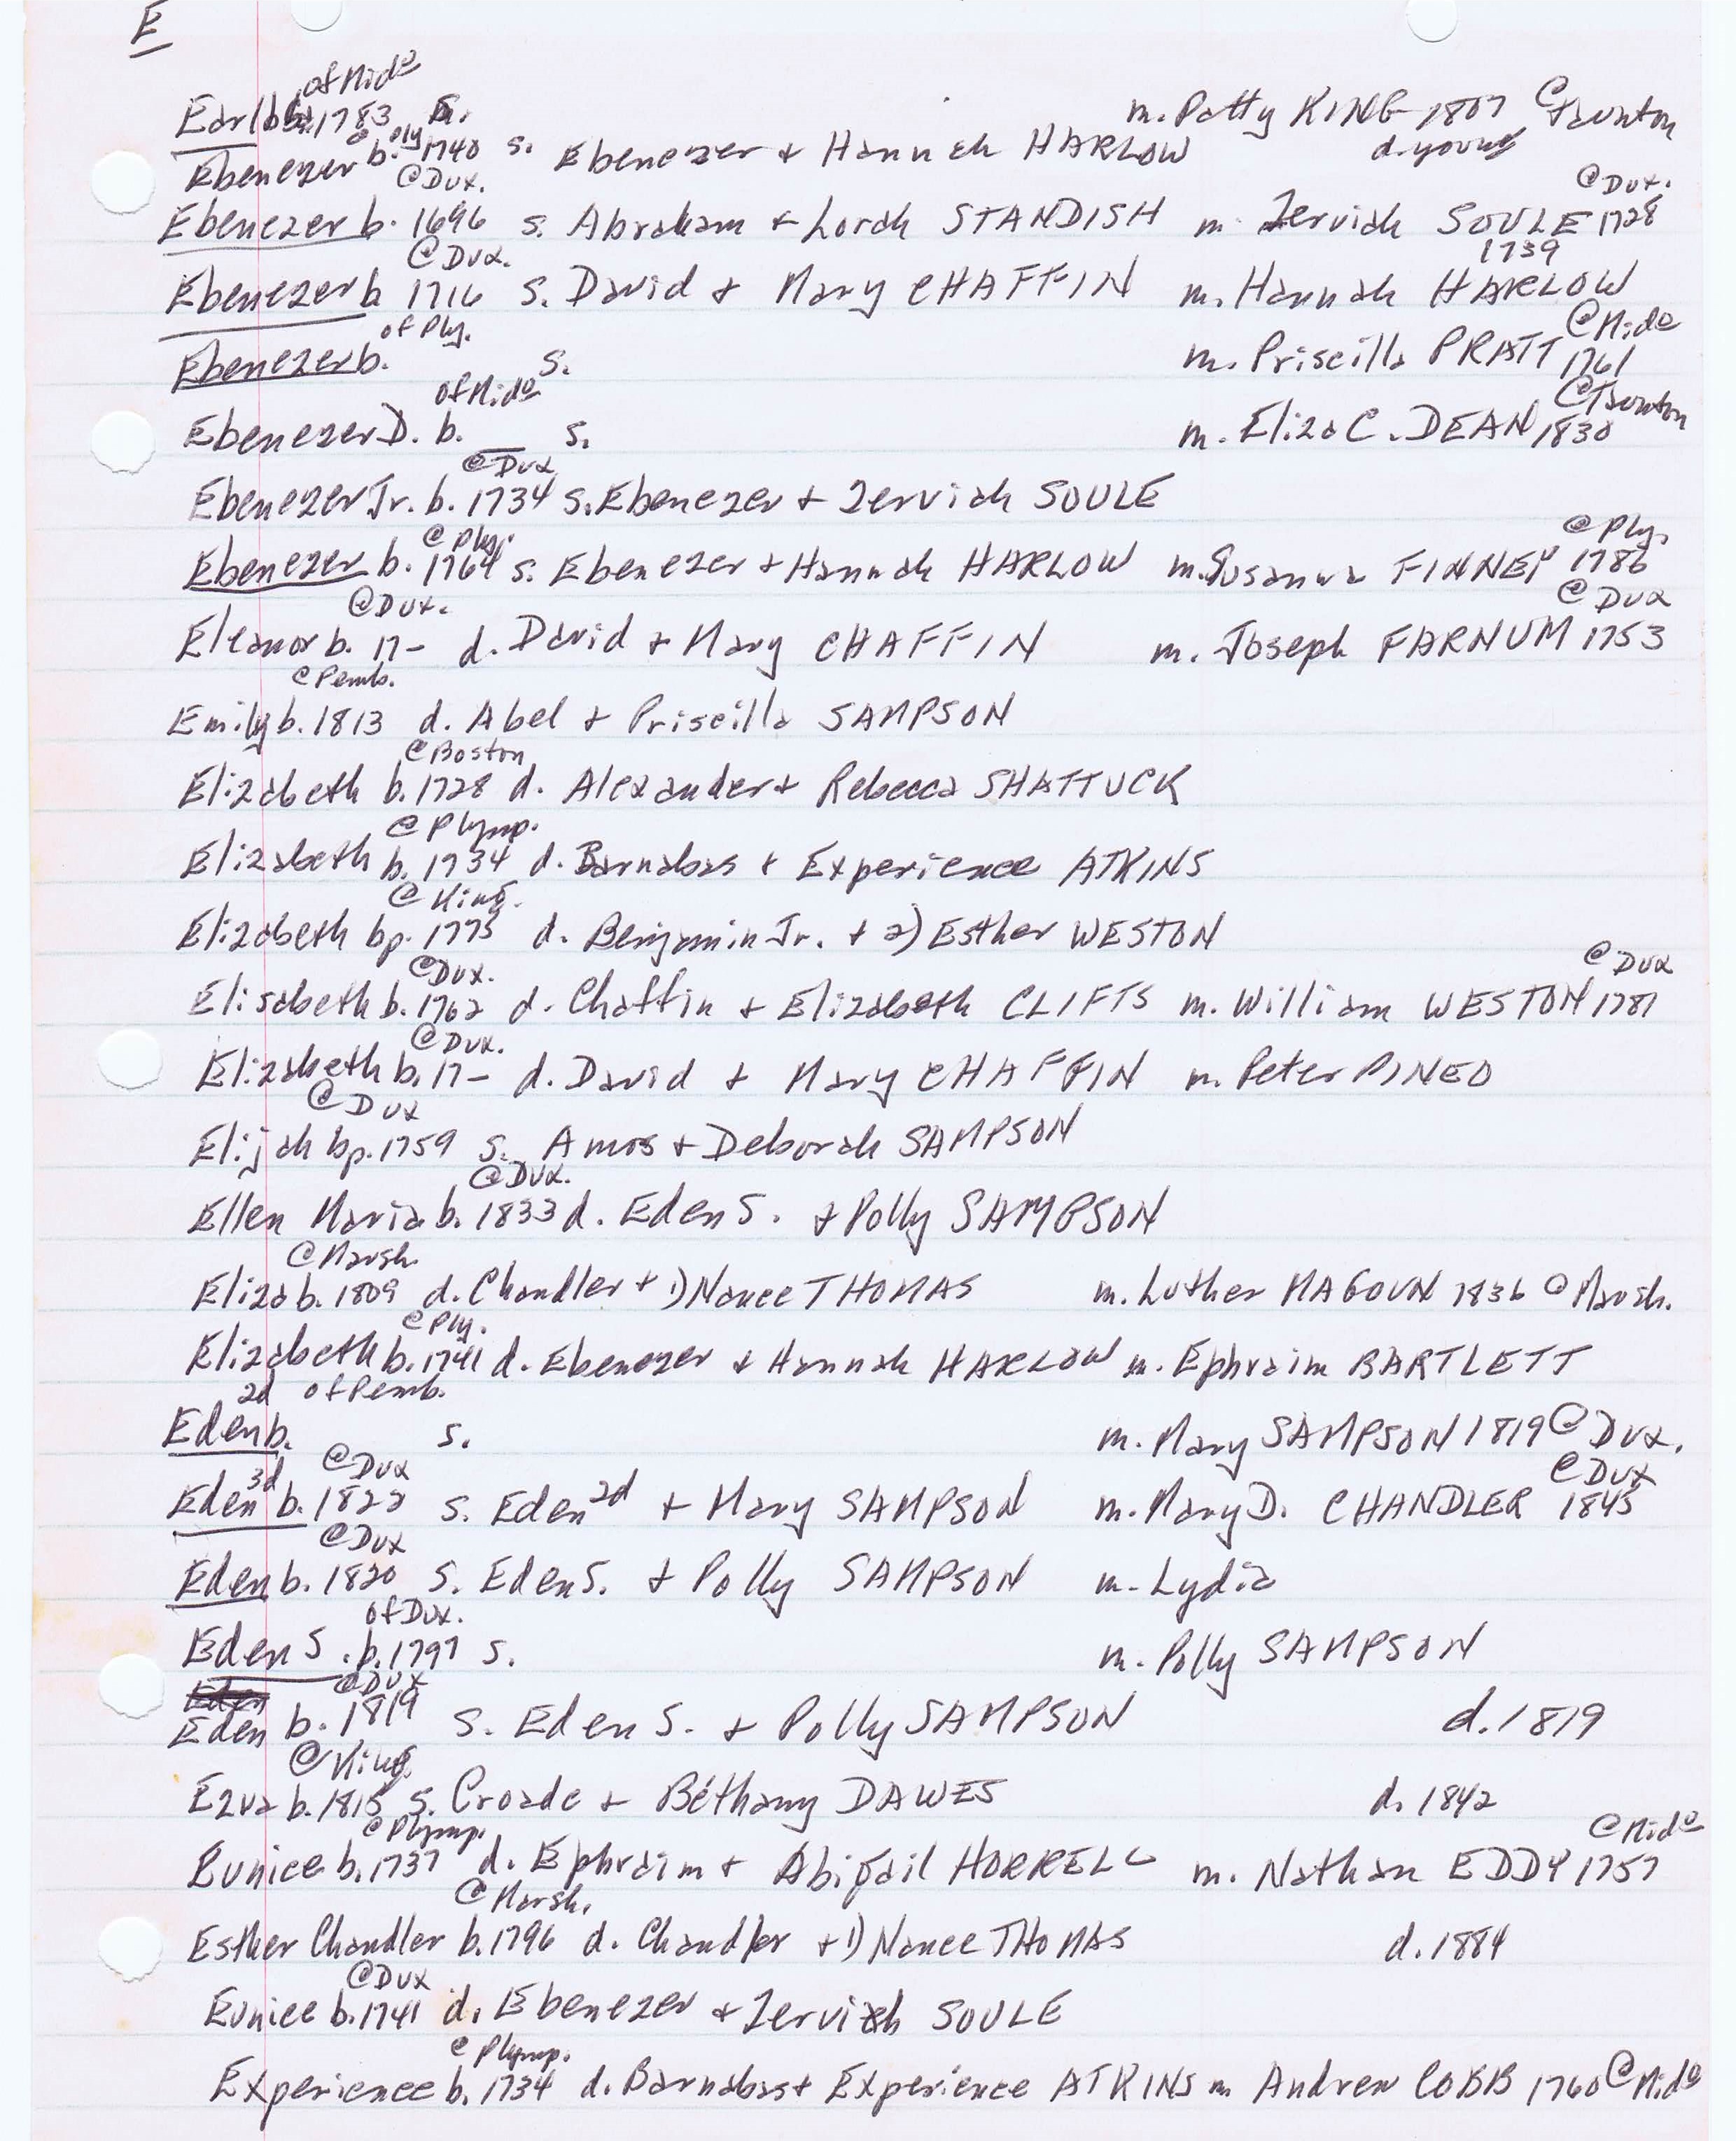 E
of Mid°
Earl b. 1783 s. m. Patty KING 1807 @ Taunton
Ebenezer b. @ Ply 1740 s. Ebenezer + Hannah HARLOW d. young
@Dux. @Dux.
Ebenezer b. 1696 s. Abraham + Lorah STANDISH m. Zerviah SOULE 1728
@Dux. 1739
Ebenezer b. 1716 s. David + Mary CHAFFIN m. Hannah HARLOW
of Ply. @Mid°
Ebenezer b. s. m. Priscilla PRATT 1761
of Mid° @Taunton
Ebenezer D. b. — s. m. Eliza C. DEAN 1830
@Dux
Ebenezer Jr. b. 1734 s. Ebenezer + Zerviah SOULE
@Ply. @Ply.
Ebenezer b. 1764 s. Ebenezer + Hannah HARLOW m. Susanna FINNEY 1786
@Dux. @Dux
Eleanor b. 17– d. David + Mary CHAFFIN m. Joseph FARNUM 1753
@Pemb.
Emily b. 1813 d. Abel + Priscilla SAMPSON
@Boston
Elizabeth b. 1728 d. Alexander + Rebecca SHATTUCK
@Plymp.
Elizabeth b. 1734 d. Barnabas + Experience ATKINS
@King.
Elizabeth bp. 1775 d. Benjamin Jr. + 2) Esther WESTON
@Dux. @Dux
Elisabeth b. 1762 d. Chaffin + Elizabeth CLIFTS m. William WESTON 1781
@Dux.
Elizabeth b. 17– d. David + Mary CHAFFIN m. Peter PINEO
@Dux
Elijah bp. 1759 s. Amos + Deborah SAMPSON
@Dux.
Ellen Maria b. 1833 d. Eden S. + Polly SAMPSON
@Marsh.
Eliza b. 1809 d. Chandler + 1) Nance THOMAS m. Luther MAGOUN 1836 @Marsh.
@Ply.
Elizabeth b. 1741 d. Ebenezer + Hannah HARLOW m. Ephraim BARTLETT
2d of Pemb.
Eden b. s. m. Mary SAMPSON 1819 @Dux.
3d @Dux @Dux
Eden b. 1822 s. Eden 2d + Mary SAMPSON m. Mary D. CHANDLER 1845
@Dux
Eden b. 1820 s. Eden S. + Polly SAMPSON m. Lydia
of Dux.
Eden S. b. 1797 s. m. Polly SAMPSON
Eden @Dux
Eden b. 1819 s. Eden S. + Polly SAMPSON d. 1819
@King.
Ezra b. 1815 s. Croade + Bethany DAWES d. 1842
@Plymp. @Mid°
Eunice b. 1737 d. Ephraim + Abigail HORRELL m. Nathan EDDY 1757
@Marsh.
Esther Chandler b. 1796 d. Chandler + 1) Nance THOMAS d. 1884
@Dux
Eunice b. 1741 d. Ebenezer + Zerviah SOULE
@Plymp.
Experience b. 1734 d. Barnabas + Experience ATKINS m. Andrew COBB 1760 @Mid°